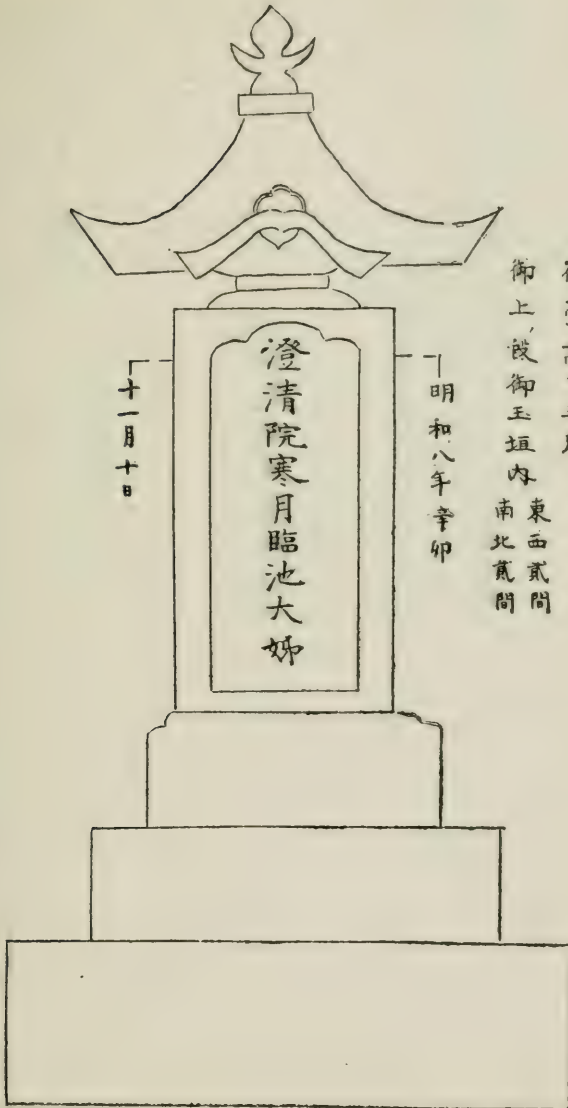 御上ノ段御玉垣内
東西貳間
南北貳間
明和八年辛卯
澄清院寒月臨池大姉
十一月十日